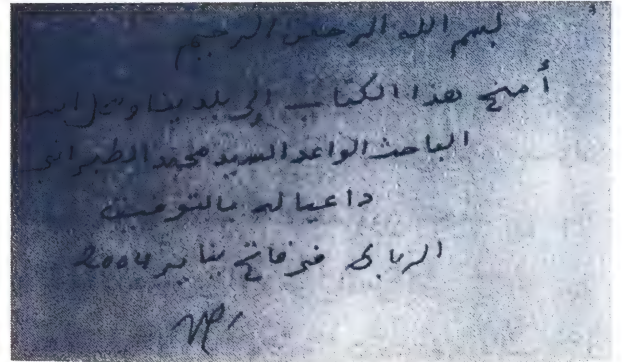 بسم الله الرحمن الرحيم
أمنح هذا الكتاب إلى بلدينا
الباحث الواعد السيد محمد الطبراني
داعيا له بالتوفيق
الرباط في فاتح يناير 2004